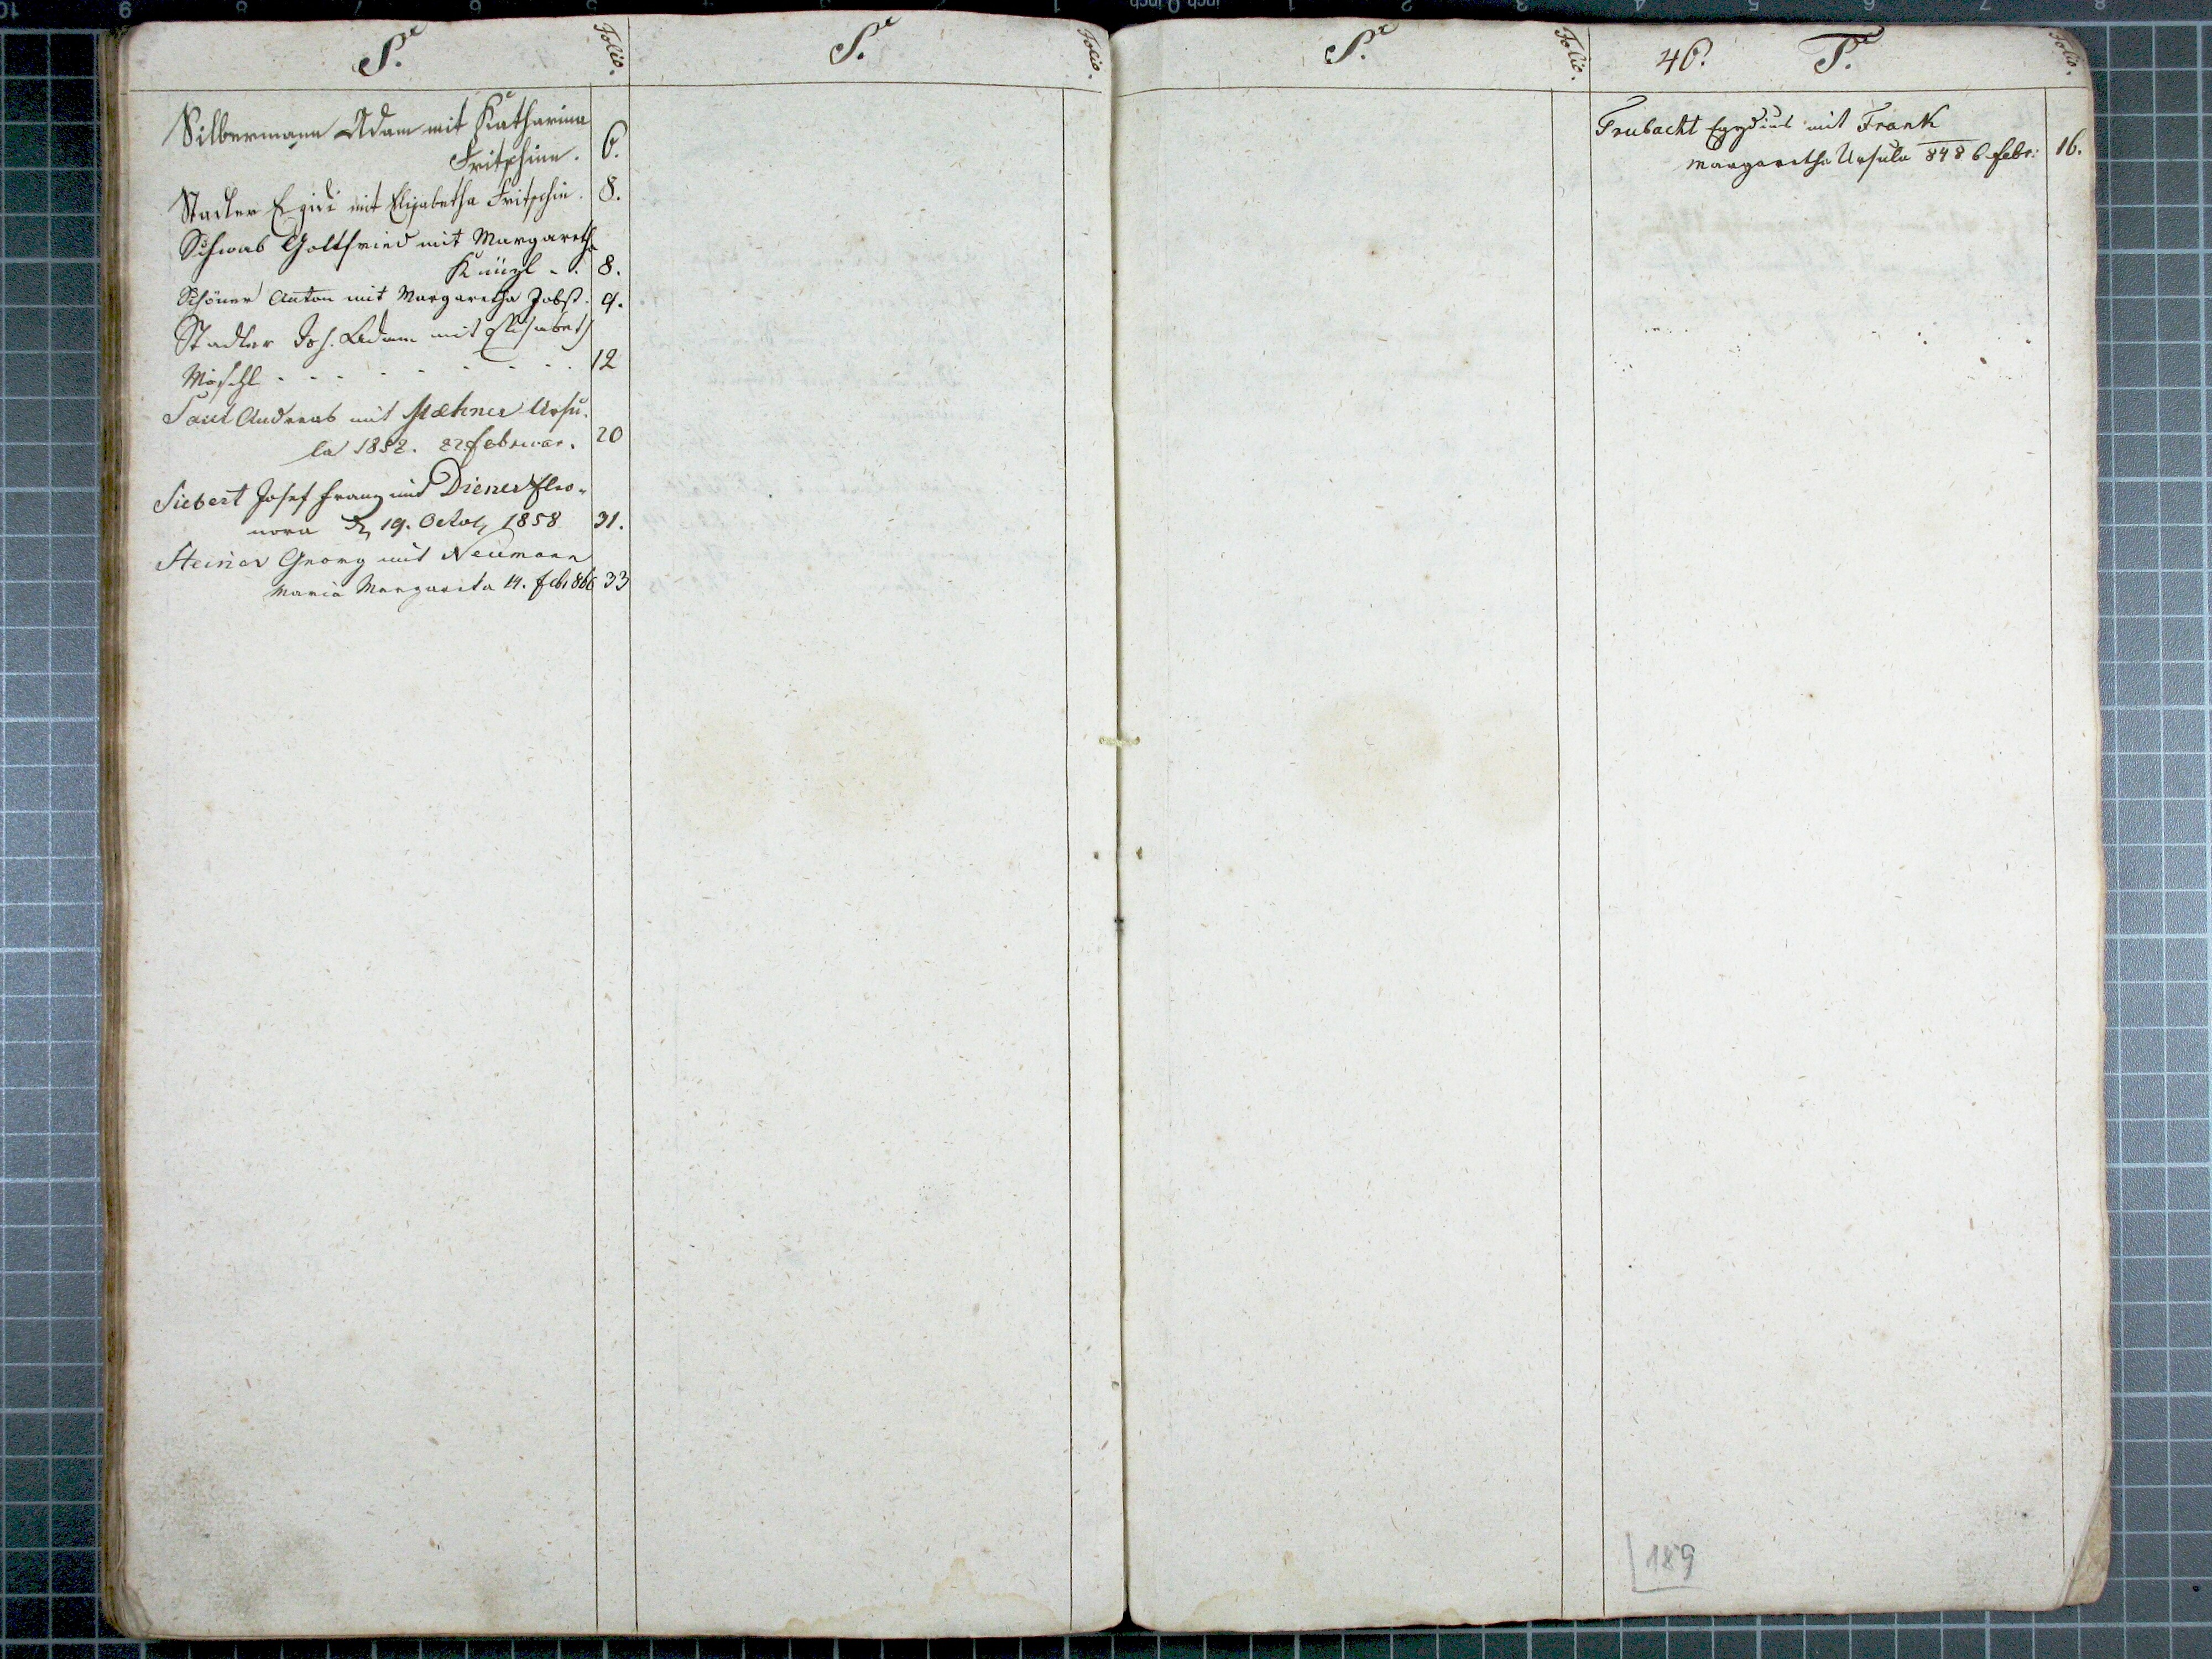 S.
Folio.
Silbermann Adam mit Katharina
Fritschin. 6.
Stadler Egidi mit Elisabetha Fritschin. 8.
Schwab Gottfried mit Margareth
8.
Schöner Anton mit Margaretha Jobst. 9.
Stadler Joh. Adam mit Elisabeth
Möschl 12
Andreas mit Ursu-
la 1852. 22 Februar. 20
Siebert Josef Franz mit Diener Eleo-
nora 19. Octob 1858 31.
Steiner Georg mit Neumann
Maria Margareta 14. feb 1866 33
S.
Folio.
S.
Folio.
46. T.
Folio.
Trubacht Egydius mit Frank
Margaretha Ursula 848 6 febr: 16.
189